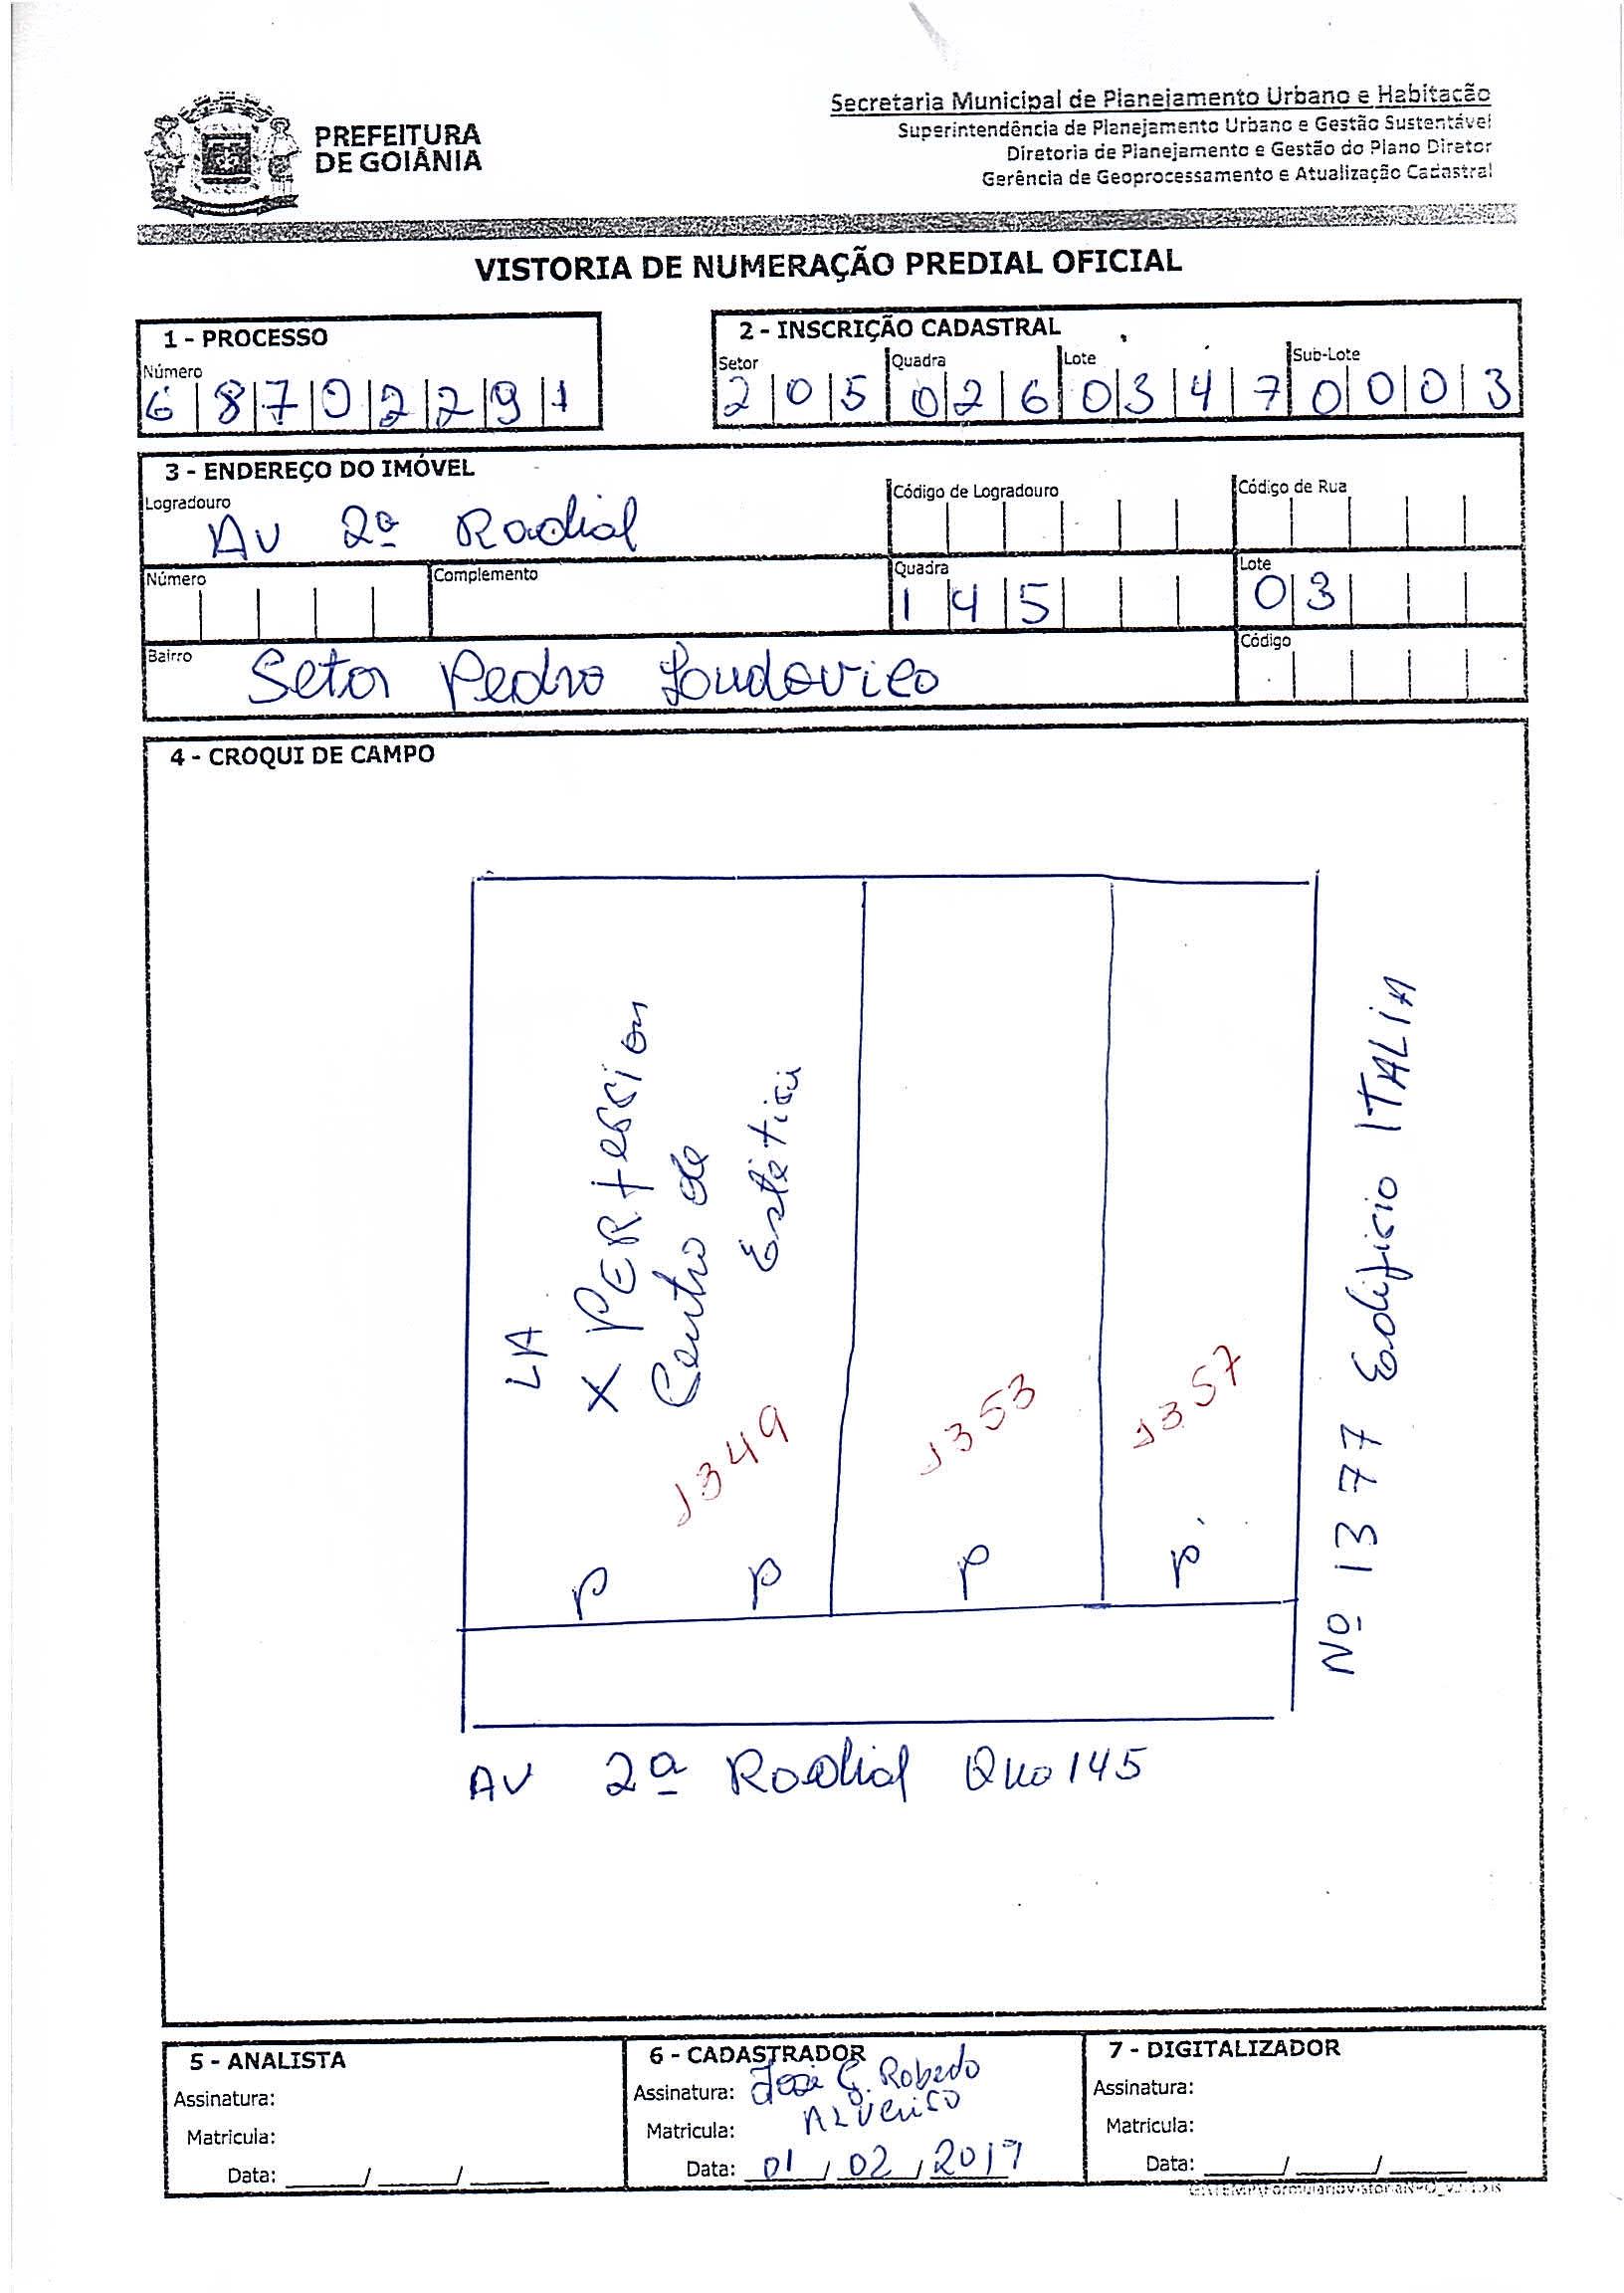 PREFEITURA
DE GOIÂNIA
Secretaria Municipal de Planejamento Urbano e Habitação
Superintendência de Planejamento Urbano e Gestão Sustentável
Diretoria de Planejamento e Gestão do Plano Diretor
Gerência de Geoprocessamento e Atualização Cadastral
VISTORIA DE NUMERAÇÃO PREDIAL OFICIAL
1 - PROCESSO
Número
6 8 7 0 2 2 9 1
2 - INSCRIÇÃO CADASTRAL
Setor Quadra Lote Sub-Lote
2 0 5 0 2 6 0 3 4 7 0 0 0 3
3 - ENDEREÇO DO IMÓVEL
Logradouro Código de Logradouro Código de Rua
Av 2ª Radial
Número Complemento Quadra Lote
1 4 5 0 3
Bairro Código
Setor Pedro Loudovico
4 - CROQUI DE CAMPO
LA
X PERfession
Centro de
Estética
1349
1353
1357
P P P P
Nº 1377 Edificio ITALIA
AV 2ª Radial Qua 145
5 - ANALISTA
Assinatura:
Matricula:
Data: / /
6 - CADASTRADOR
Assinatura: José G. Robedo
Matricula:
Data: 01 / 02 / 2017
7 - DIGITALIZADOR
Assinatura:
Matricula:
Data: / /